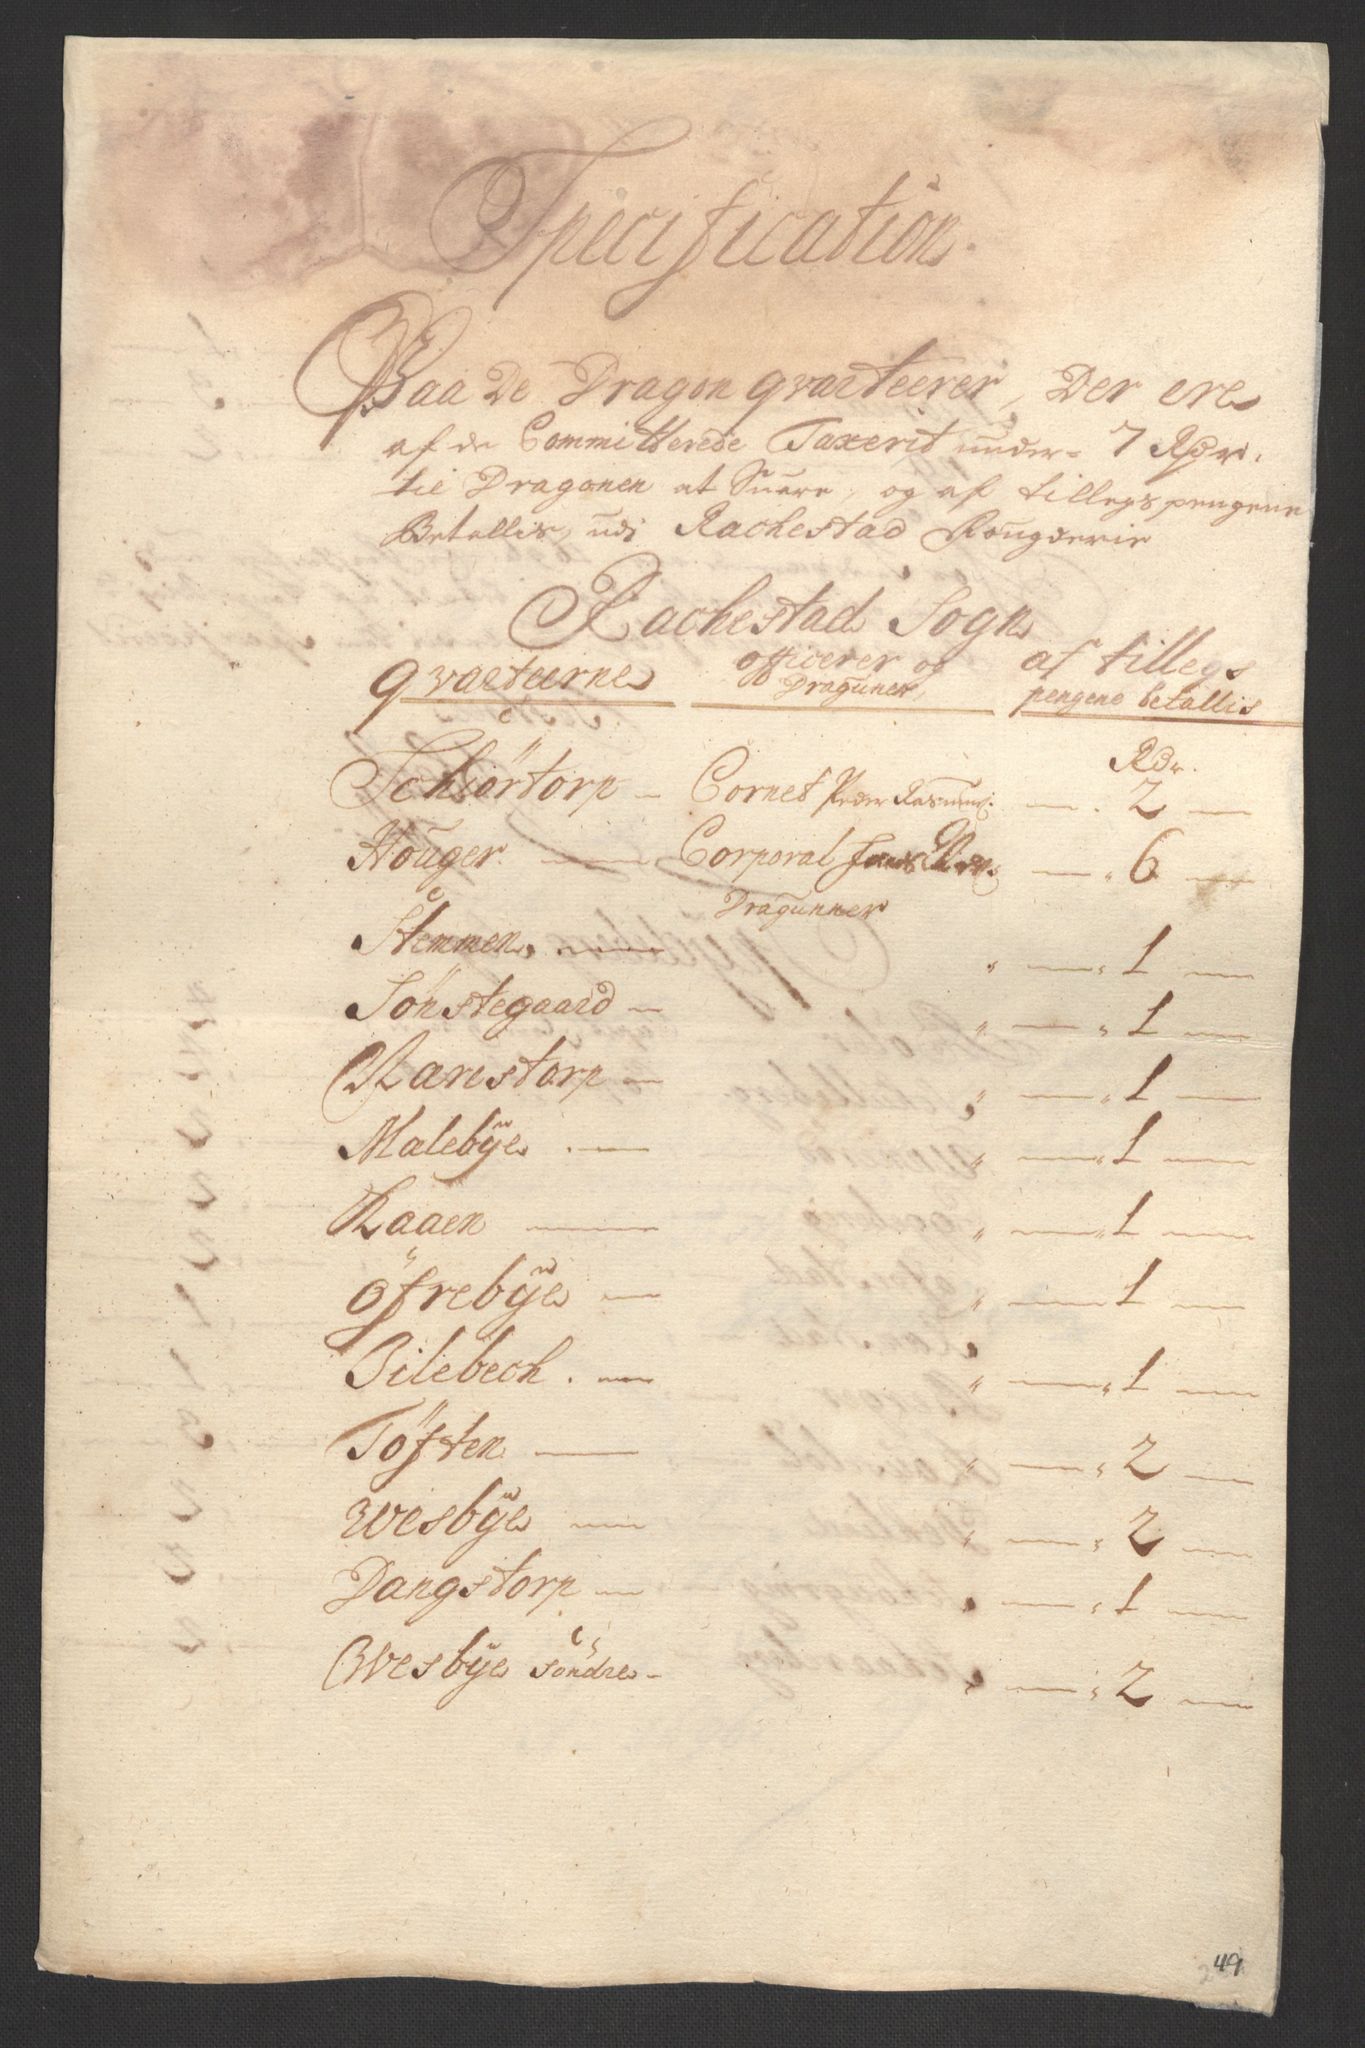 Specification
Paa De Dragon qvarteerer, Der ere
af de Committerede Taxerit under 7 Rdr.
til Dragonen at Suare, og af tillegspengene
Betallis, udi Rachestad Fougderie
Rachestad Sogn
qvarteerne officerer og Draguner, af tillegs pengene betallis
Rdr.
Schiörtorp - Cornet Peder Rasmus: - 2 -
Houger - Corporal - 6 -
Dragunner
Stemmen - " - " 1 -
Sönstegaard - " - " 1 -
Karestorp - " - " 1 -
Malebÿe - " - " 1 -
Kaaen - " - " 1 -
Öfrebÿe - " - " 1 -
Bilebech - " - " 1 -
Töften - " - " 2 -
Wesbÿe - " - " 2 -
Dangstorp - " - " 1 -
Wesbÿe söndre - " - " 2 -
49